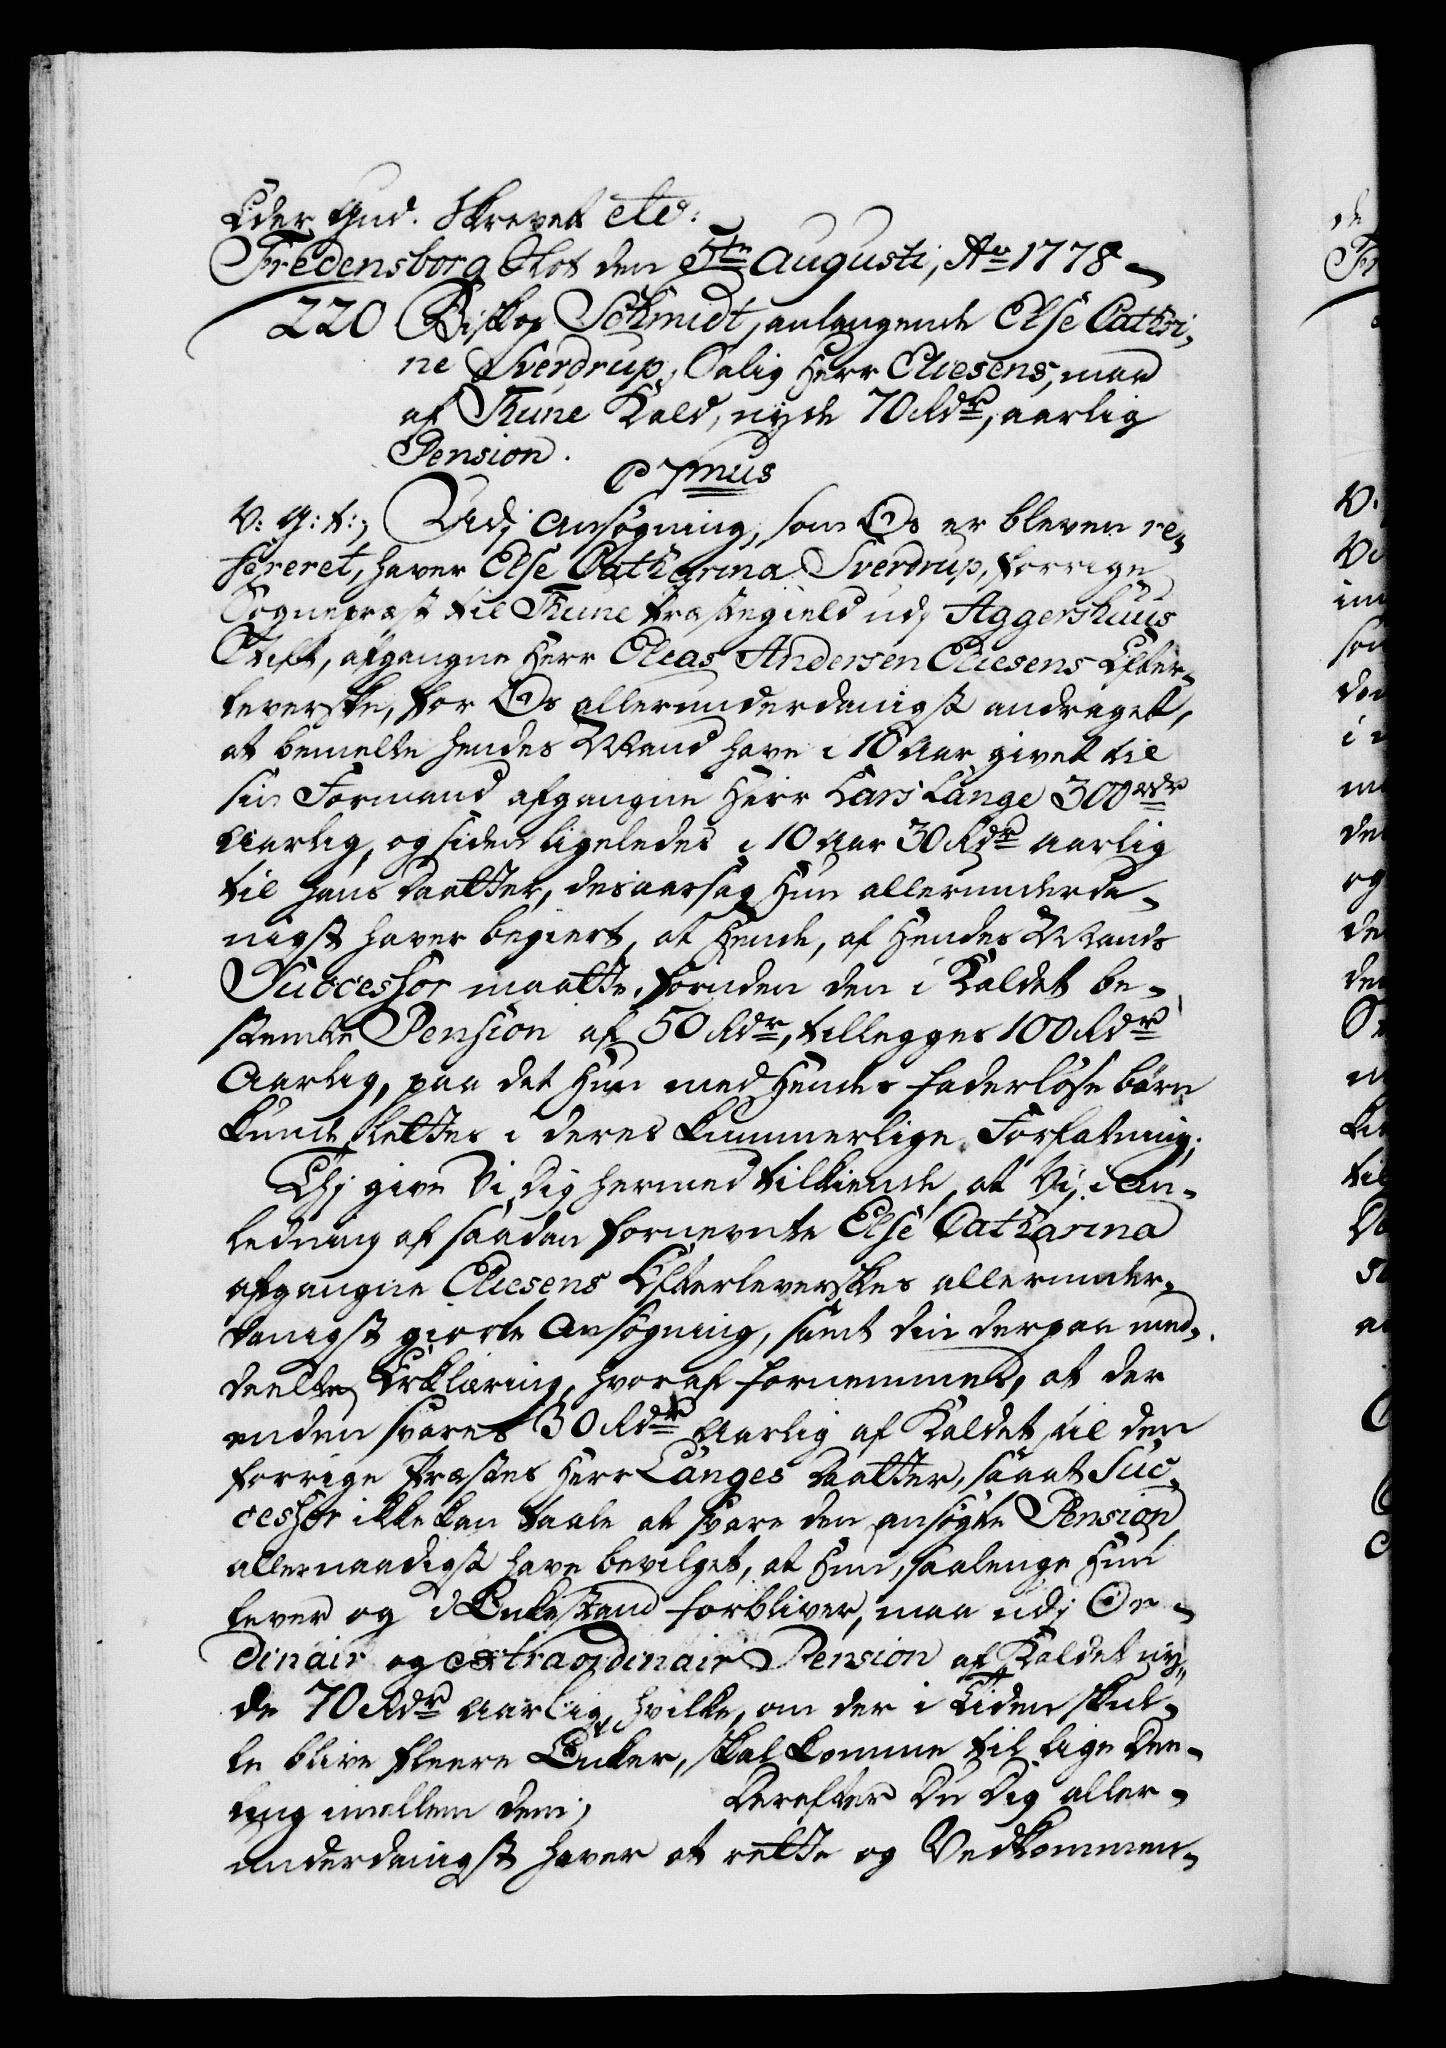 Eder Gud. Skrevet etc:
Fredensborg Slot den 5te Augusti, Ao 1778
220 Biskop Schmidt, anlangende Else Cathri-
ne Sverdrup, Salig Herr Eliesens, maa
af Thune Kald, nyde 70 Rdr, aarlig
Pension.
C 7mus
V: G: T:, Udj Ansøgning, som Os er bleven re-
fereret, haver Else Catharina Sverdrup, forrige
Sognepræst til Thune Præstegield udj Aggershuus
Stift, afgangne Herr Elias Andersen Eliesens Efter-
leverske, for Os allerunderdanigst andraget,
at bemelte hendes Mand have i 10 Aar givet til
sin Formand afgangne Herr Lars Lange 300 Rdr
aarlig, og siden ligeledes i 10 Aar 30 Rdr aarlig
til hans Daatter, desaarsag Hun allerunderda-
nigst haver begiert, at Hende, af Hendes Mands
Successor maatte, foruden den i Kaldet be-
stemte Pension af 50 Rdr, tillegges 100 Rdr
Aarlig, paa det Hun med Hendes faderløse børn
kunde lettes i deres kummerlige Forfatning;
Thj give Vi Dig hermed tilkiende, at Vi, i An-
ledning af saadan fornevnte Else Catharina
afgangne Eliesens Efterleverskes allerunder-
danigst giorte Ansøgning, samt din derpaa med-
deelte Erklæring, hvoraf fornemmes, at der
enden svares 30 Rdr Aarlig af Kaldet til den
forrige Præstes Herr Langes Daatter, saa at Suc-
cessor ikke kan taale at svare den ansøgte Pension
allernaadigst have bevilget, at Hun, saalenge Hun
lever og i Enkestand forbliver, maa udj Or-
dinair og extraordinair Pension af Kaldet ny-
de 70 Rdr Aarlig, hvilke, om der i Tiden skul-
le blive fleere Enker, skal komme til lige Dee-
ling imellem dem; Derefter Du Dig aller-
underdanigst haver at rette og Vedkommen-